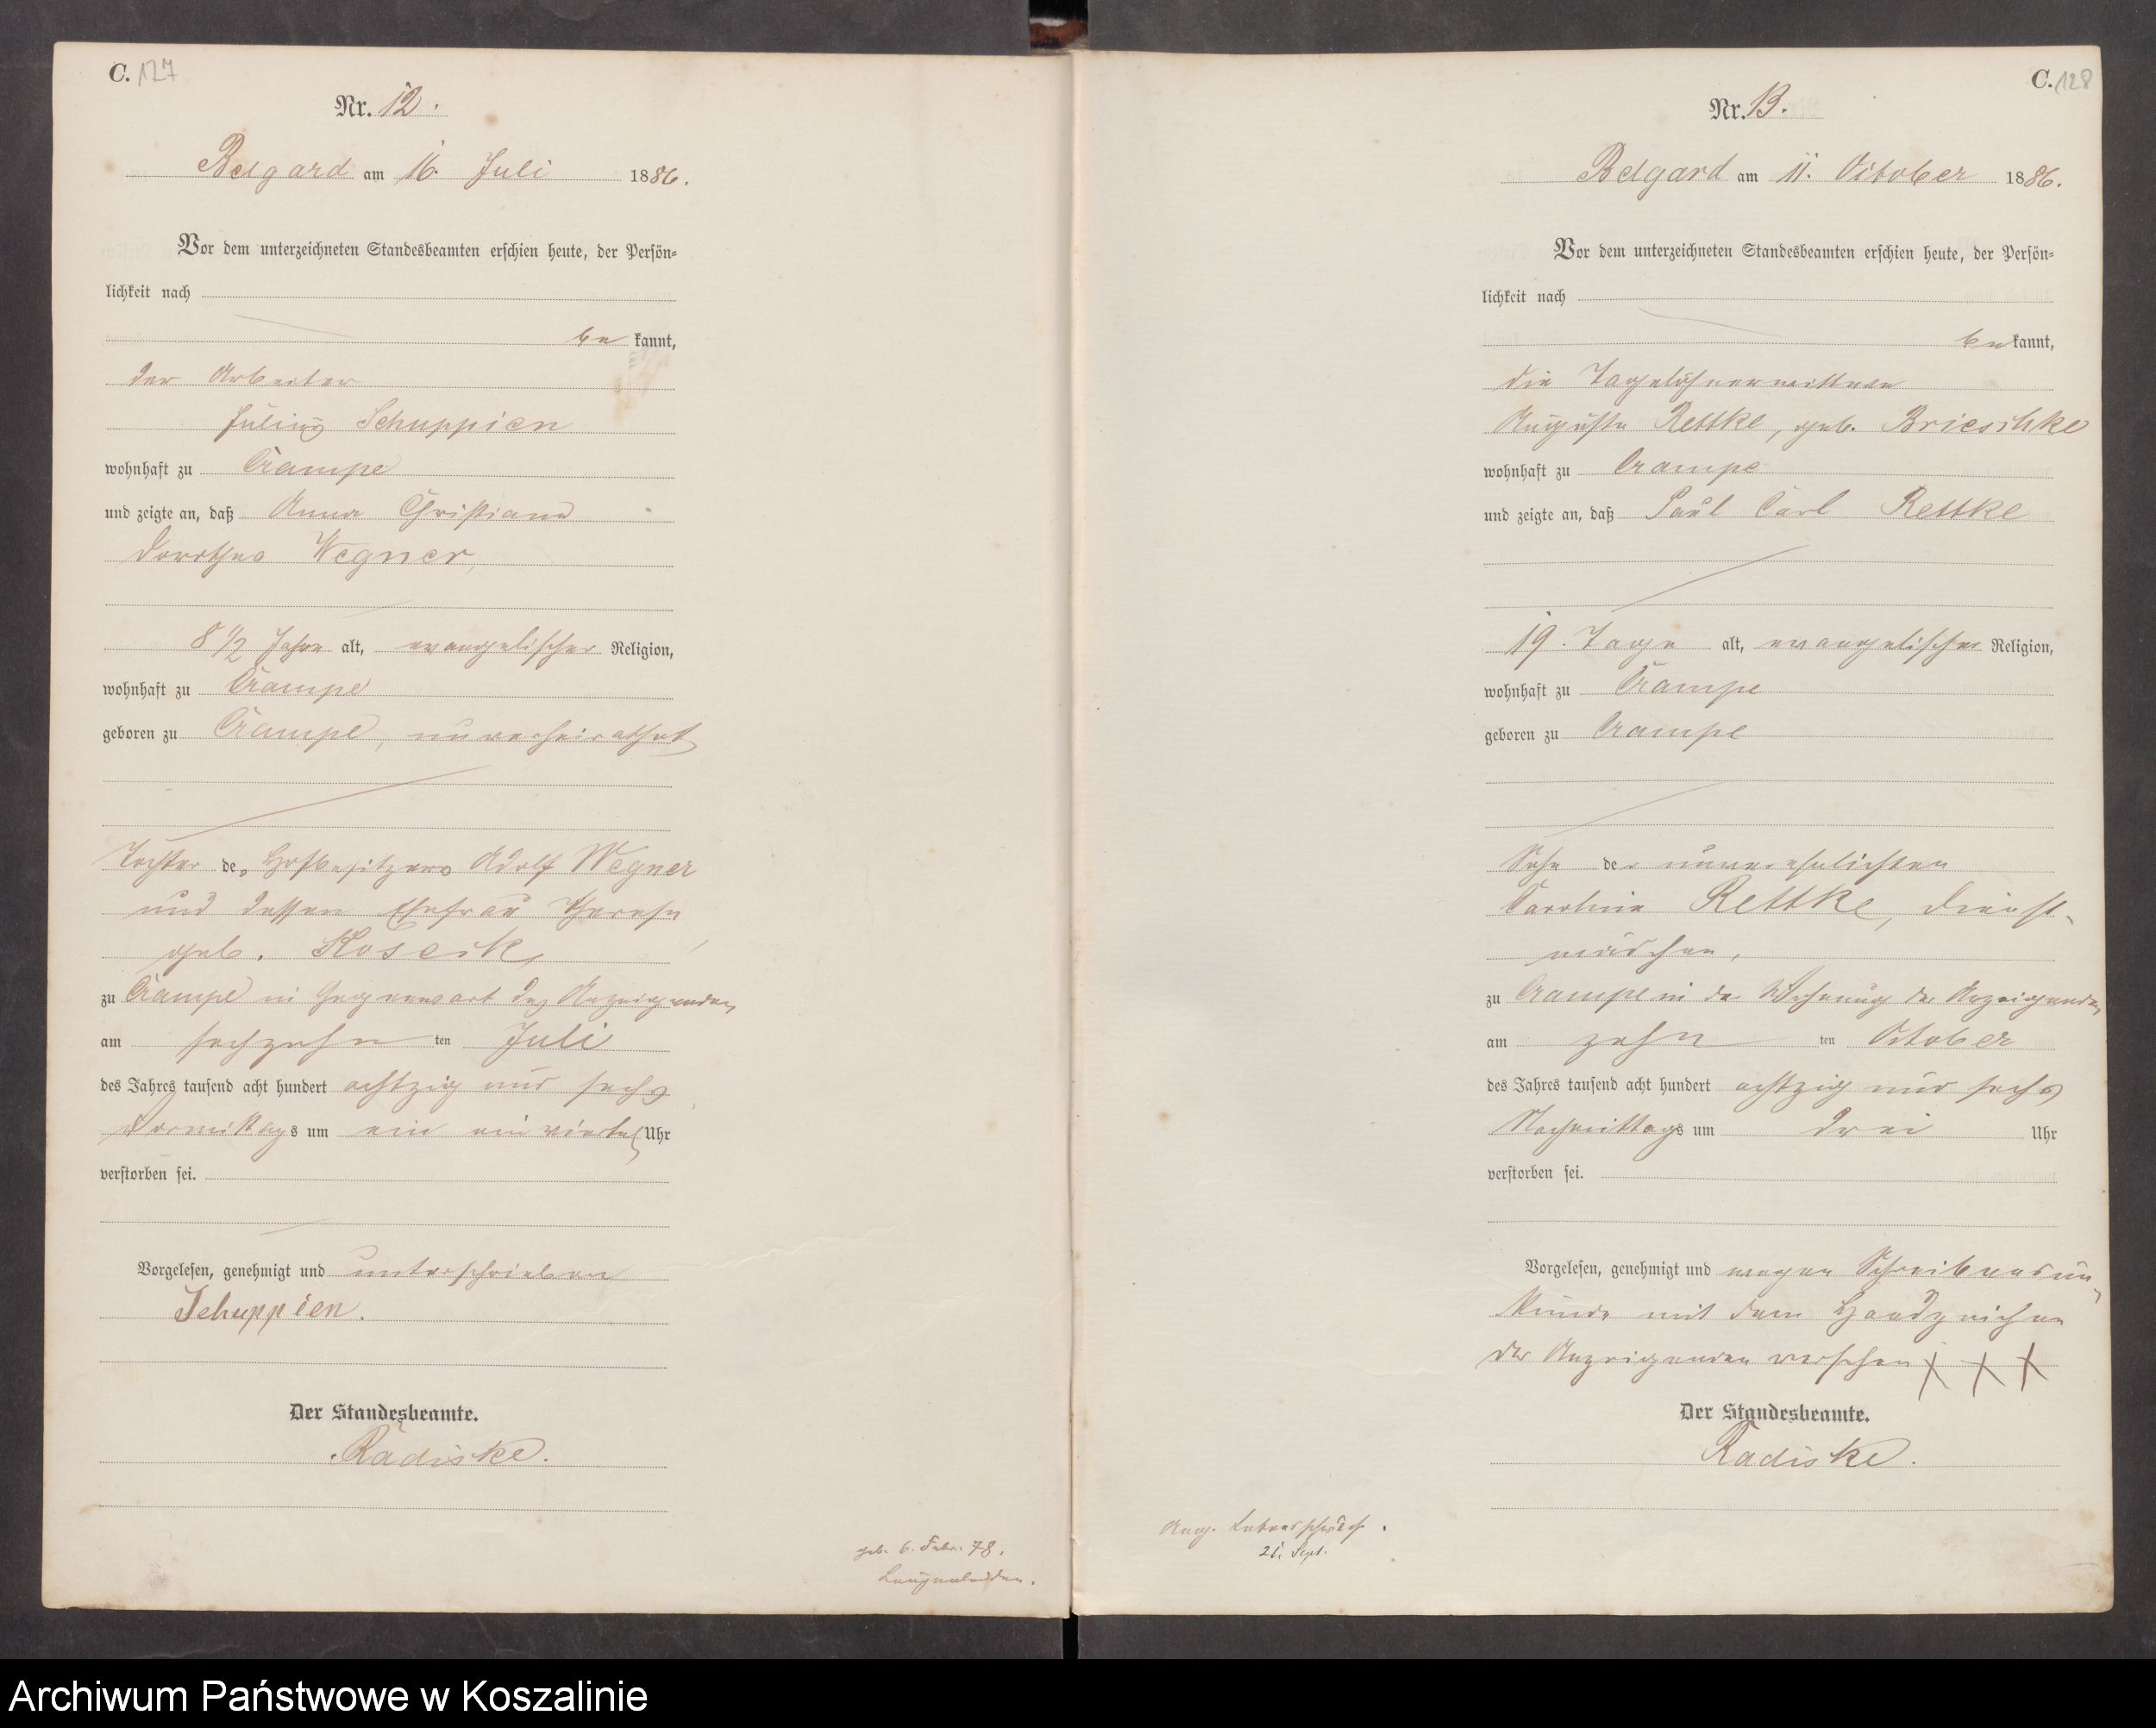 C. 127
Nr. 12.
Belgard am 16. Juli 1886.
Vor dem unterzeichneten Standesbeamten erschien heute, der Persön=
lichkeit nach
be kannt,
der Arbeiter
Julius Schuppien
wohnhaft zu Crampe
und zeigte an, daß Anna Christiane
Dorothea Wegner,
8 1/2 Jahre alt, evangelischer Religion,
wohnhaft zu Crampe
geboren zu Crampe, unverheirathet
Tochter des Hofbesitzers Adolf Wegner
und dessen Ehefrau Therese
geb.
zu Crampe in Gegenwart des Anzeigenden
am sechzehn ten Juli
des Jahres tausend acht hundert achtzig und sechs
Vormittags um ein ein viertel Uhr
verstorben sei.
Vorgelesen, genehmigt und unterschrieben
Schuppien.
Der Standesbeamte.
Radiske.
geb. 6. Febr. 78.
C. 128
Nr. 13.
Belgard am 11. October 1886.
Vor dem unterzeichneten Standesbeamten erschien heute, der Persön=
lichkeit nach
be kannt,
die Tagelöhnerwittwe
Auguste Rettke, geb. Brieschke
wohnhaft zu Crampe
und zeigte an, daß Paul Carl Rettke
19 Tage alt, evangelischer Religion,
wohnhaft zu Crampe
geboren zu Crampe
Sohn der unverehelichten
Caroline Rettke, Dienst-
mädchen,
zu Crampe in der Wohnung der Anzeigenden
am zehn ten October
des Jahres tausend acht hundert achtzig und sechs
Nachmittags um drei Uhr
verstorben sei.
Vorgelesen, genehmigt und wegen Schreibensun-
kunde mit dem Handzeichen
der Anzeigenden versehen X X X
Der Standesbeamte.
Radiske.
Ang. Lebensschwäche.
21. Sept.
Archiwum Państwowe w Koszalinie